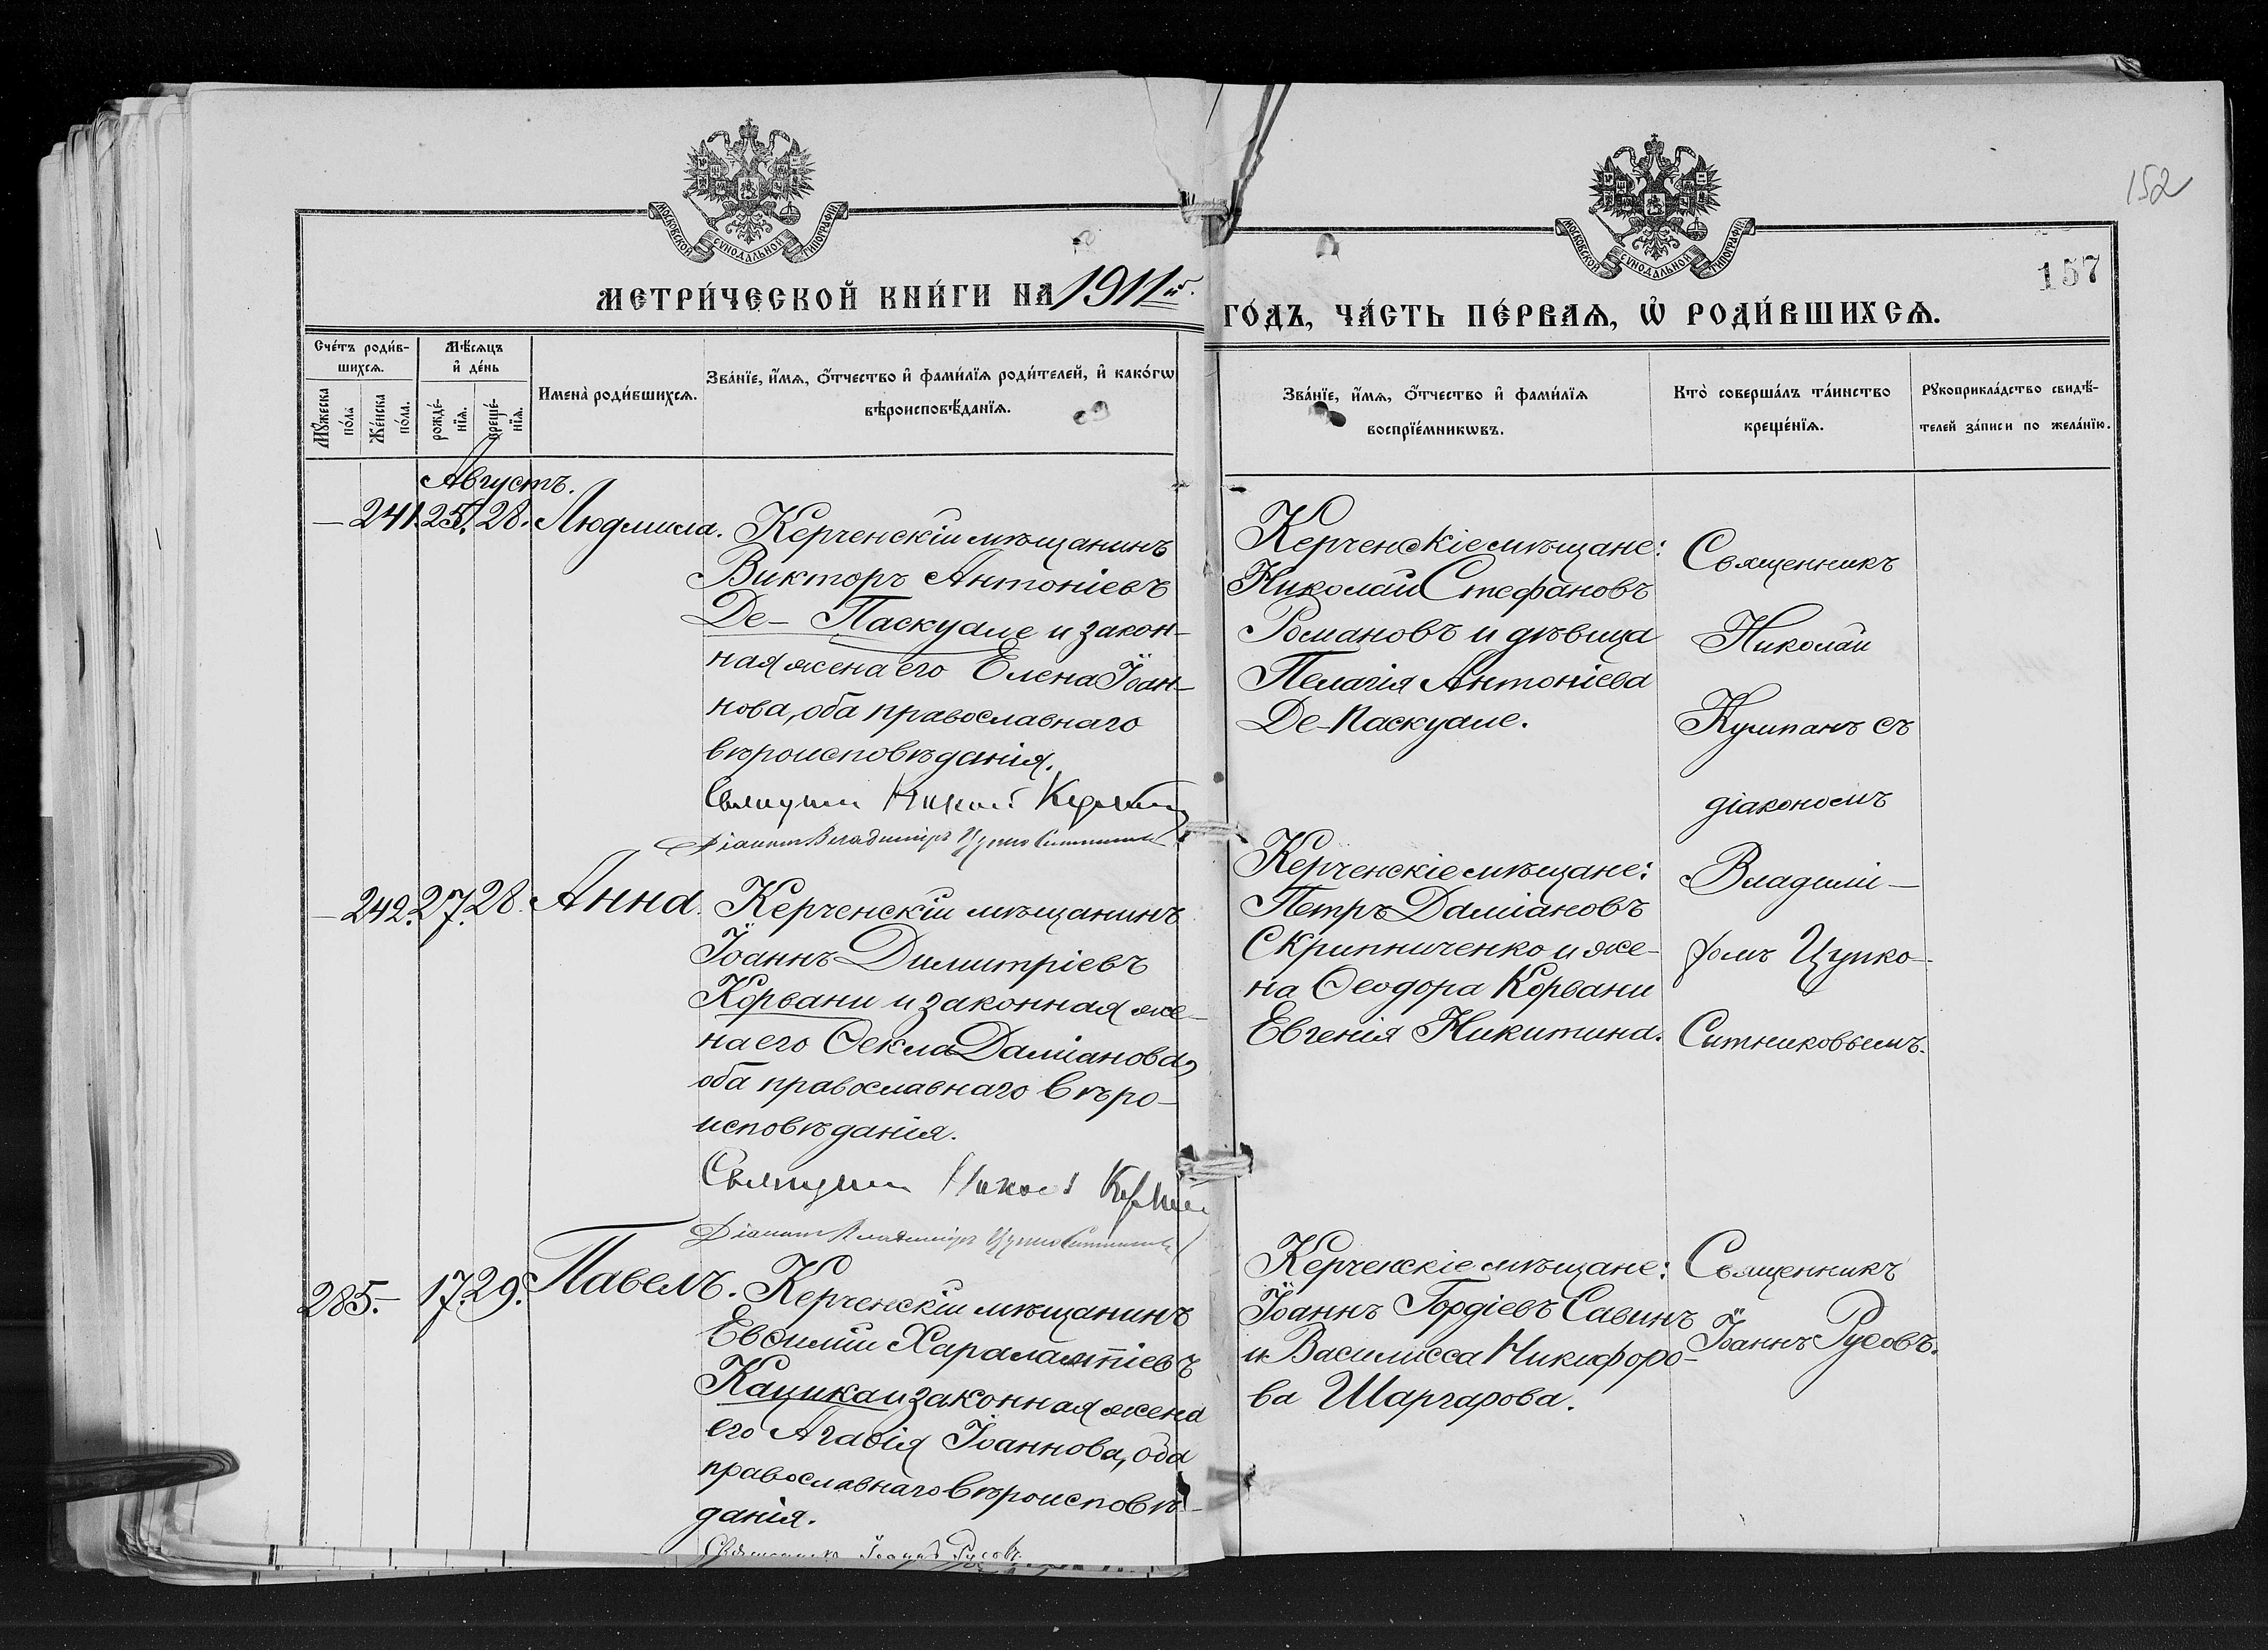 152
157
МОСКОВСКОЙ СѴНОДАЛЬНОЙ ТИПОГРАФІИ
МОСКОВСКОЙ СѴНОДАЛЬНОЙ ТИПОГРАФІИ
МЕТРИ́ЧЕСКОЙ КНИ́ГИ НА 1911й.
ГО́ДЪ, ЧА́СТЬ ПЕ́РВАѦ, Ѡ҆ РОДИ́ВШИХСѦ.
Сче́тъ роди́в-
шихсѧ.
Мꙋ́жеска
по́ла
Же́нска
по́ла.
Мѣ́сѧцъ
и҆ де́нь
рожде́-
нїѧ.
креще́-
нїѧ.
И҆мена̀ роди́вшихсѧ.
Зва́нїе, и҆́мѧ, ѻ҆́тчество и҆ фами́лїѧ роди́телей, и҆ како́гѡ
вѣроисповѣ́данїѧ.
Зва́нїе, и҆́мѧ, ѻ҆́тчество и҆ фами́лїѧ
воспрїе́мникѡвъ.
Кто̀ соверша́лъ та́инство
креще́нїѧ.
Рꙋкоприкла́дство свидѣ́-
телей за́писи по жела́нїю.
Августъ.
— 241. 25. 28. Людмила.
Керченскій мѣщанинъ
Викторъ Антоніевъ
Де-Паскуале и закон-
ная жена его Елена Іоан-
нова, оба православнаго
вѣроисповѣданія.
Священникъ Николай Кумпанъ
Діаконъ Владиміръ Цупко Ситниковъ
Керченскіе мѣщане:
Николай Стефановъ
Романовъ и дѣвица
Пелагія Антоніева
Де-Паскуале.
Священникъ
Николай
Кумпанъ съ
діакономъ
Владимі-
ромъ Цупко-
Ситниковымъ.
— 242. 27. 28. Анна.
Керченскій мѣщанинъ
Іоаннъ Димитріевъ
Корвани и законная же-
на его Ѳекла Даміанова,
оба православнаго вѣро-
исповѣданія.
Священникъ Николай Кумпанъ
Діаконъ Владиміръ Цупко Ситниковъ
Керченскіе мѣщане:
Петръ Даміановъ
Скрипниченко и же-
на Ѳеодора Корвани
Евгенія Никитина.
285. — 17. 29. Павелъ.
Керченскій мѣщанинъ
Евѳимій Харалампіевъ
Кацика и законная жена
его Агаѳія Іоаннова, оба
православнаго вѣроисповѣ-
данія.
Священникъ Іоаннъ Русовъ
Керченскіе мѣщане:
Іоаннъ Гордіевъ Савинъ
и Василисса Никифоро-
ва Шаргарова.
Священникъ
Іоаннъ Русовъ.